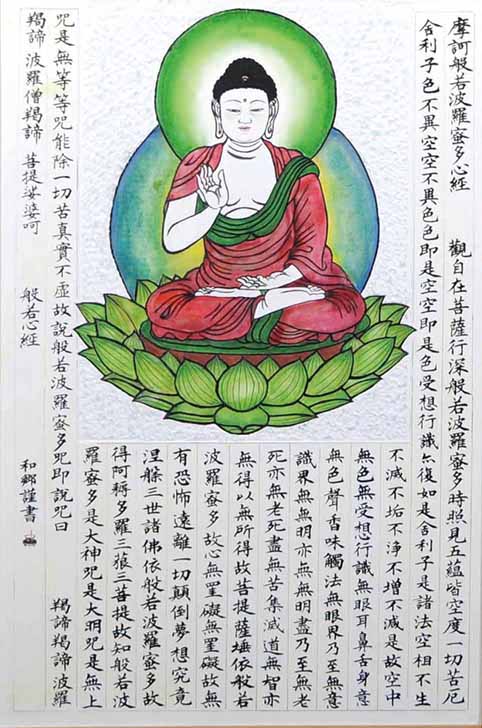 摩訶般若波羅蜜多心經　觀自在菩薩行深般若波羅蜜多時照見五蘊皆空度一切苦厄
舍利子色不異空空不異色色即是空空即是色受想行識亦復如是舍利子是諸法空相不生
不滅不垢不淨不增不減是故空中
無色無受想行識無眼耳鼻舌身意
無色聲香味觸法無眼界乃至無意
識界無無明亦無無明盡乃至無老
死亦無老死盡無苦集滅道無智亦
無得以無所得故菩提薩埵依般若
波羅蜜多故心無罣礙無罣礙故無
有恐怖遠離一切顛倒夢想究竟
涅槃三世諸佛依般若波羅蜜多故
得阿耨多羅三藐三菩提故知般若波
羅蜜多是大神咒是大明咒是無上
咒是無等等咒能除一切苦真實不虛故說般若波羅蜜多咒即說咒曰　羯諦羯諦波羅
羯諦　波羅僧羯諦　菩提娑婆呵　般若心經　和鄉謹書